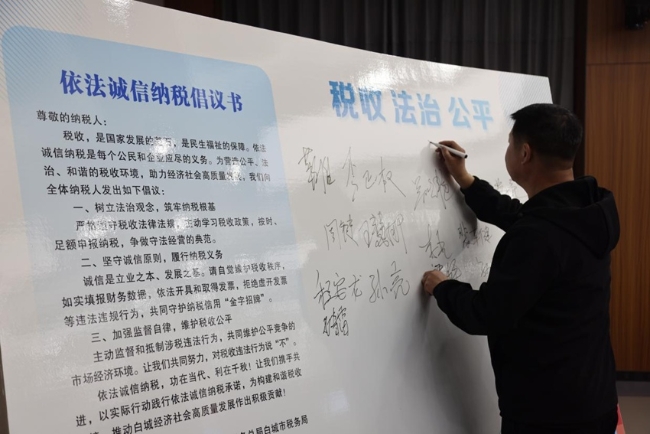 依法诚信纳税倡议书
尊敬的纳税人：
税收，是国家发展的基石，是民生福祉的保障。依法
诚信纳税是每个公民和企业应尽的义务。为营造公平、法
治、和谐的税收环境，助力经济社会高质量发展，我们向
全体纳税人发出如下倡议：
一、树立法治观念，筑牢纳税根基
严格遵守税收法律法规，主动学习税收政策，按时、
足额申报纳税，争做守法经营的典范。
二、坚守诚信原则，履行纳税义务
诚信是立业之本、发展之基。请自觉维护税收秩序，
如实填报财务数据，依法开具和取得发票，拒绝虚开发票
等违法违规行为，共同守护纳税信用“金字招牌”。
三、加强监督自律，维护税收公平
主动监督和抵制涉税违法行为，共同维护公平竞争的
市场经济环境。让我们共同努力，对税收违法行为说“不”。
依法诚信纳税，功在当代、利在千秋！让我们携手共
进，以实际行动践行依法诚信纳税承诺，为构建和谐税收
推动白城经济社会高质量发展作出积极贡献！
局白城市税务局
税收 法治 公平
孙亮